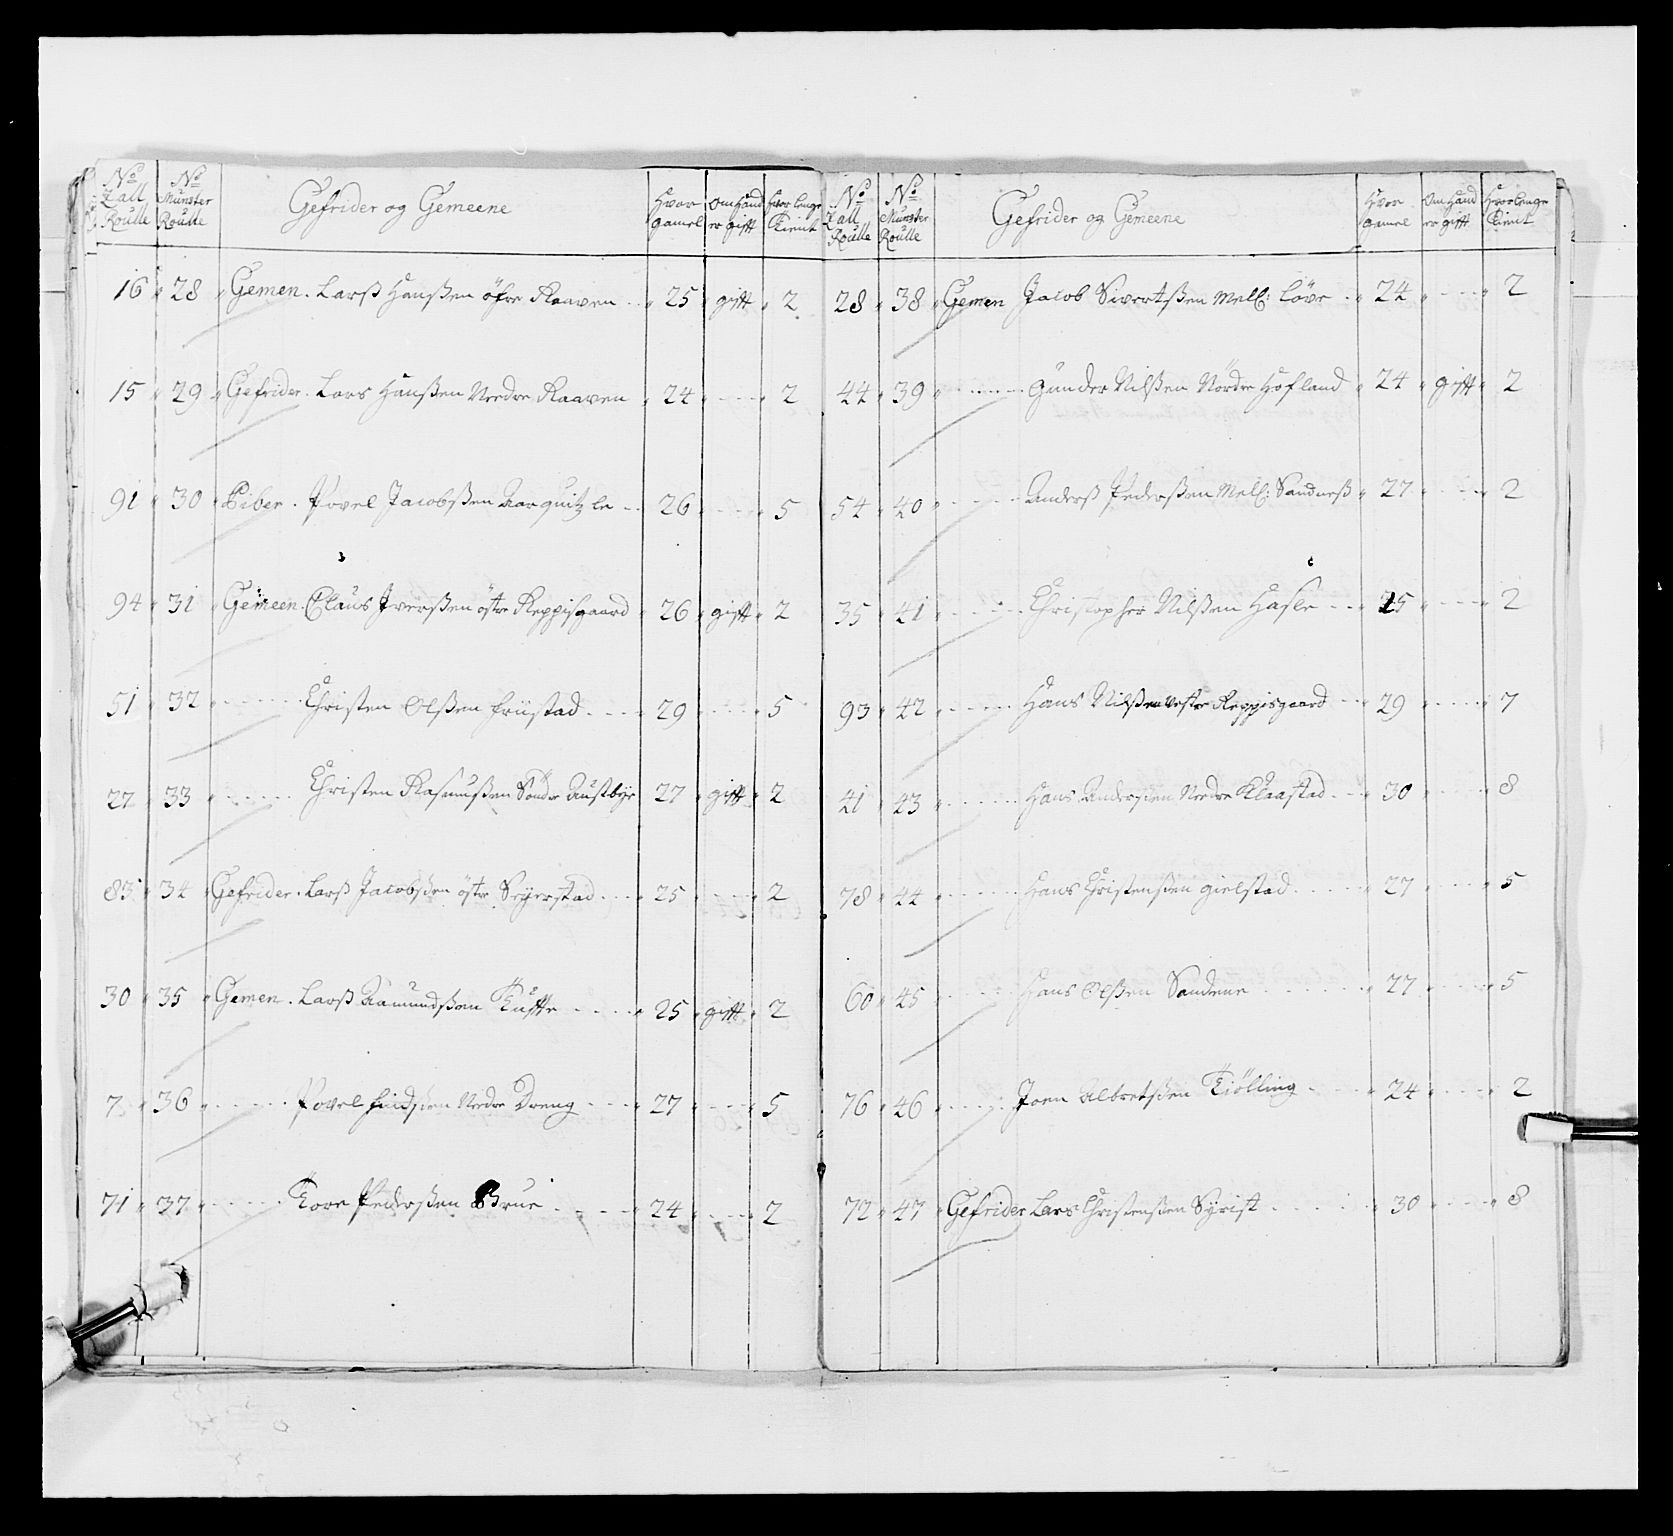 No Zall Roulle | No Münster Roulle | Gefrider og Gemeene | Hvor gamel | Om Hand er gift | Hvor lenge tient
16 28 Gemen. Larß Hanßen öfre Raaven 25 gift 2
15 29 Gefrider. Lars Hanßen Nedre Raaven 24 2
91 30 Piber. Povel Jacobßen 26 5
94 31 Gemeen. Claus Iverßen östre Reppisgaard 26 gift 2
51 32 Christen Olßen Früstad 29 5
27 33 Christen Rasmußen Söndr Austbye 27 gift 2
83 34 Gefrider. Larß Jacobßen östr Seyerstad 25 2
30 35 Gemen. Larß Aamundßen Tufte 25 gift 2
7 36 Povel Findßen Nedre Dreng 27 5
71 37 Tore Pederßen Brue 24 2
No Zall Roulle | No Münster Roulle | Gefrider og Gemeene | Hvor gamel | Om Hand er gift | Hvor lenge tient
28 38 Gemen Jacob Sivertßen Mell: Löve 24 2
44 39 Gunder Nilßen Nördre Hofland 24 gift 2
54 40 Anderß Pederßen Mell: Sandneß 27 2
35 41 Christopher Nilßen Hasle 25 2
93 42 Hans Nilßen Vestre Reppisgaard 29 7
41 43 Hans Anderßen Nedre Klaastad 30 8
78 44 Hans Christenßen gielstad 27 5
60 45 Hans Olßen Sandene 27 5
76 46 Joen Albretßen Tiölling 24 2
72 47 Gefrider Lars Christenßen Syrist 30 8